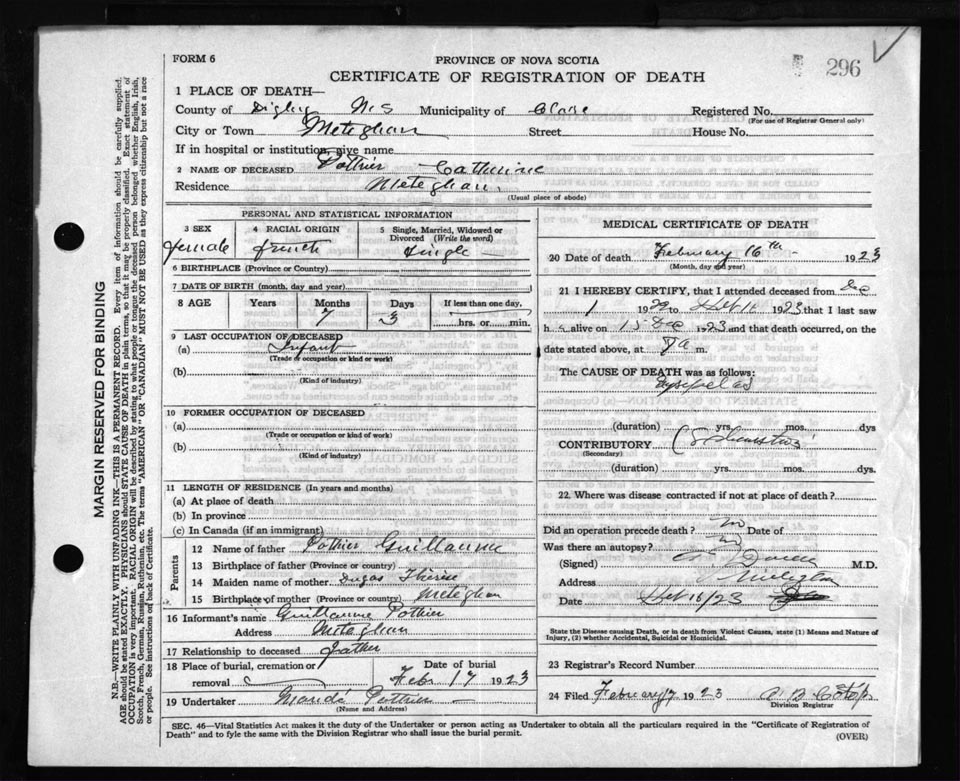 FORM 6
PROVINCE OF NOVA SCOTIA
296
CERTIFICATE OF REGISTRATION OF DEATH
1 PLACE OF DEATH—
County of Digby N.S Municipality of Clare Registered No.
(For use of Registrar General only)
City or Town Meteghan Street House No.
If in hospital or institution, give name
2 NAME OF DECEASED Pothier Catherine
Residence Meteghan.
(Usual place of abode)
PERSONAL AND STATISTICAL INFORMATION
3 SEX
female
4 RACIAL ORIGIN
french
5 Single, Married, Widowed or Divorced (Write the word)
Single
6 BIRTHPLACE (Province or Country)
7 DATE OF BIRTH (month, day and year)
8 AGE Years Months Days If less than one day,
7 3 hrs. or min.
9 LAST OCCUPATION OF DECEASED
(a) Infant
(Trade or occupation or kind of work)
(b)
(Kind of industry)
10 FORMER OCCUPATION OF DECEASED
(a)
(Trade or occupation or kind of work)
(b)
(Kind of industry)
11 LENGTH OF RESIDENCE (In years and months)
(a) At place of death
(b) In province
(c) In Canada (if an immigrant)
Parents
12 Name of father Pothier Guillaume
13 Birthplace of father (Province or country)
14 Maiden name of mother Dugas Thérèse
15 Birthplace of mother (Province or country) Meteghan
16 Informant's name Guillaume Pothier
Address Meteghan
17 Relationship to deceased father
18 Place of burial, cremation or removal
Date of burial
Febr 17 1923
19 Undertaker Mandé Pothier
(Name and Address)
MEDICAL CERTIFICATE OF DEATH
20 Date of death February 16th 1923
(Month, day and year)
21 I HEREBY CERTIFY, that I attended deceased from Dec
1 1922 to 1923 that I last saw
h alive on 15 1923 and that death occurred, on the
date stated above, at 7 a m.
The CAUSE OF DEATH was as follows:
(duration) yrs. mos. dys
CONTRIBUTORY
(Secondary)
(duration) yrs. mos. dys.
22. Where was disease contracted if not at place of death?
Did an operation precede death? no Date of
Was there an autopsy? no
(Signed) M.D.
Address
Date 16/23
State the Disease causing Death, or in death from Violent Causes, state (1) Means and Nature of
Injury, (2) whether Accidental, Suicidal or Homicidal.
23 Registrar's Record Number
24 Filed February 17 1923
Division Registrar
SEC. 46—Vital Statistics Act makes it the duty of the Undertaker or person acting as Undertaker to obtain all the particulars required in the "Certificate of Registration of
Death" and to fyle the same with the Division Registrar who shall issue the burial permit.
(OVER)
MARGIN RESERVED FOR BINDING
N.B.—WRITE PLAINLY WITH UNFADING INK—THIS IS A PERMANENT RECORD. Every item of information should be carefully supplied.
AGE should be stated EXACTLY. PHYSICIANS should STATE CAUSE OF DEATH in plain terms, so that it may be properly classified. Exact statement of
OCCUPATION is very important. RACIAL ORIGIN will be described by stating to what people or tongue the deceased person belonged whether English, Irish,
Scotch, French, German, Russian, Ruthenian, etc. The terms "AMERICAN" OR "CANADIAN" MUST NOT BE USED as they express citizenship but not a race
or people. See instructions on back of Certificate.